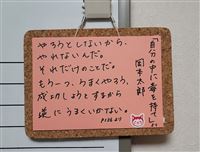 「自分の中に毒を持て」
岡本太郎
やろうとしないから、
やれないんだ。
それだけのことだ。
もう一つ、うまくやろう、
成功しようとするから
逆にうまくいかない。